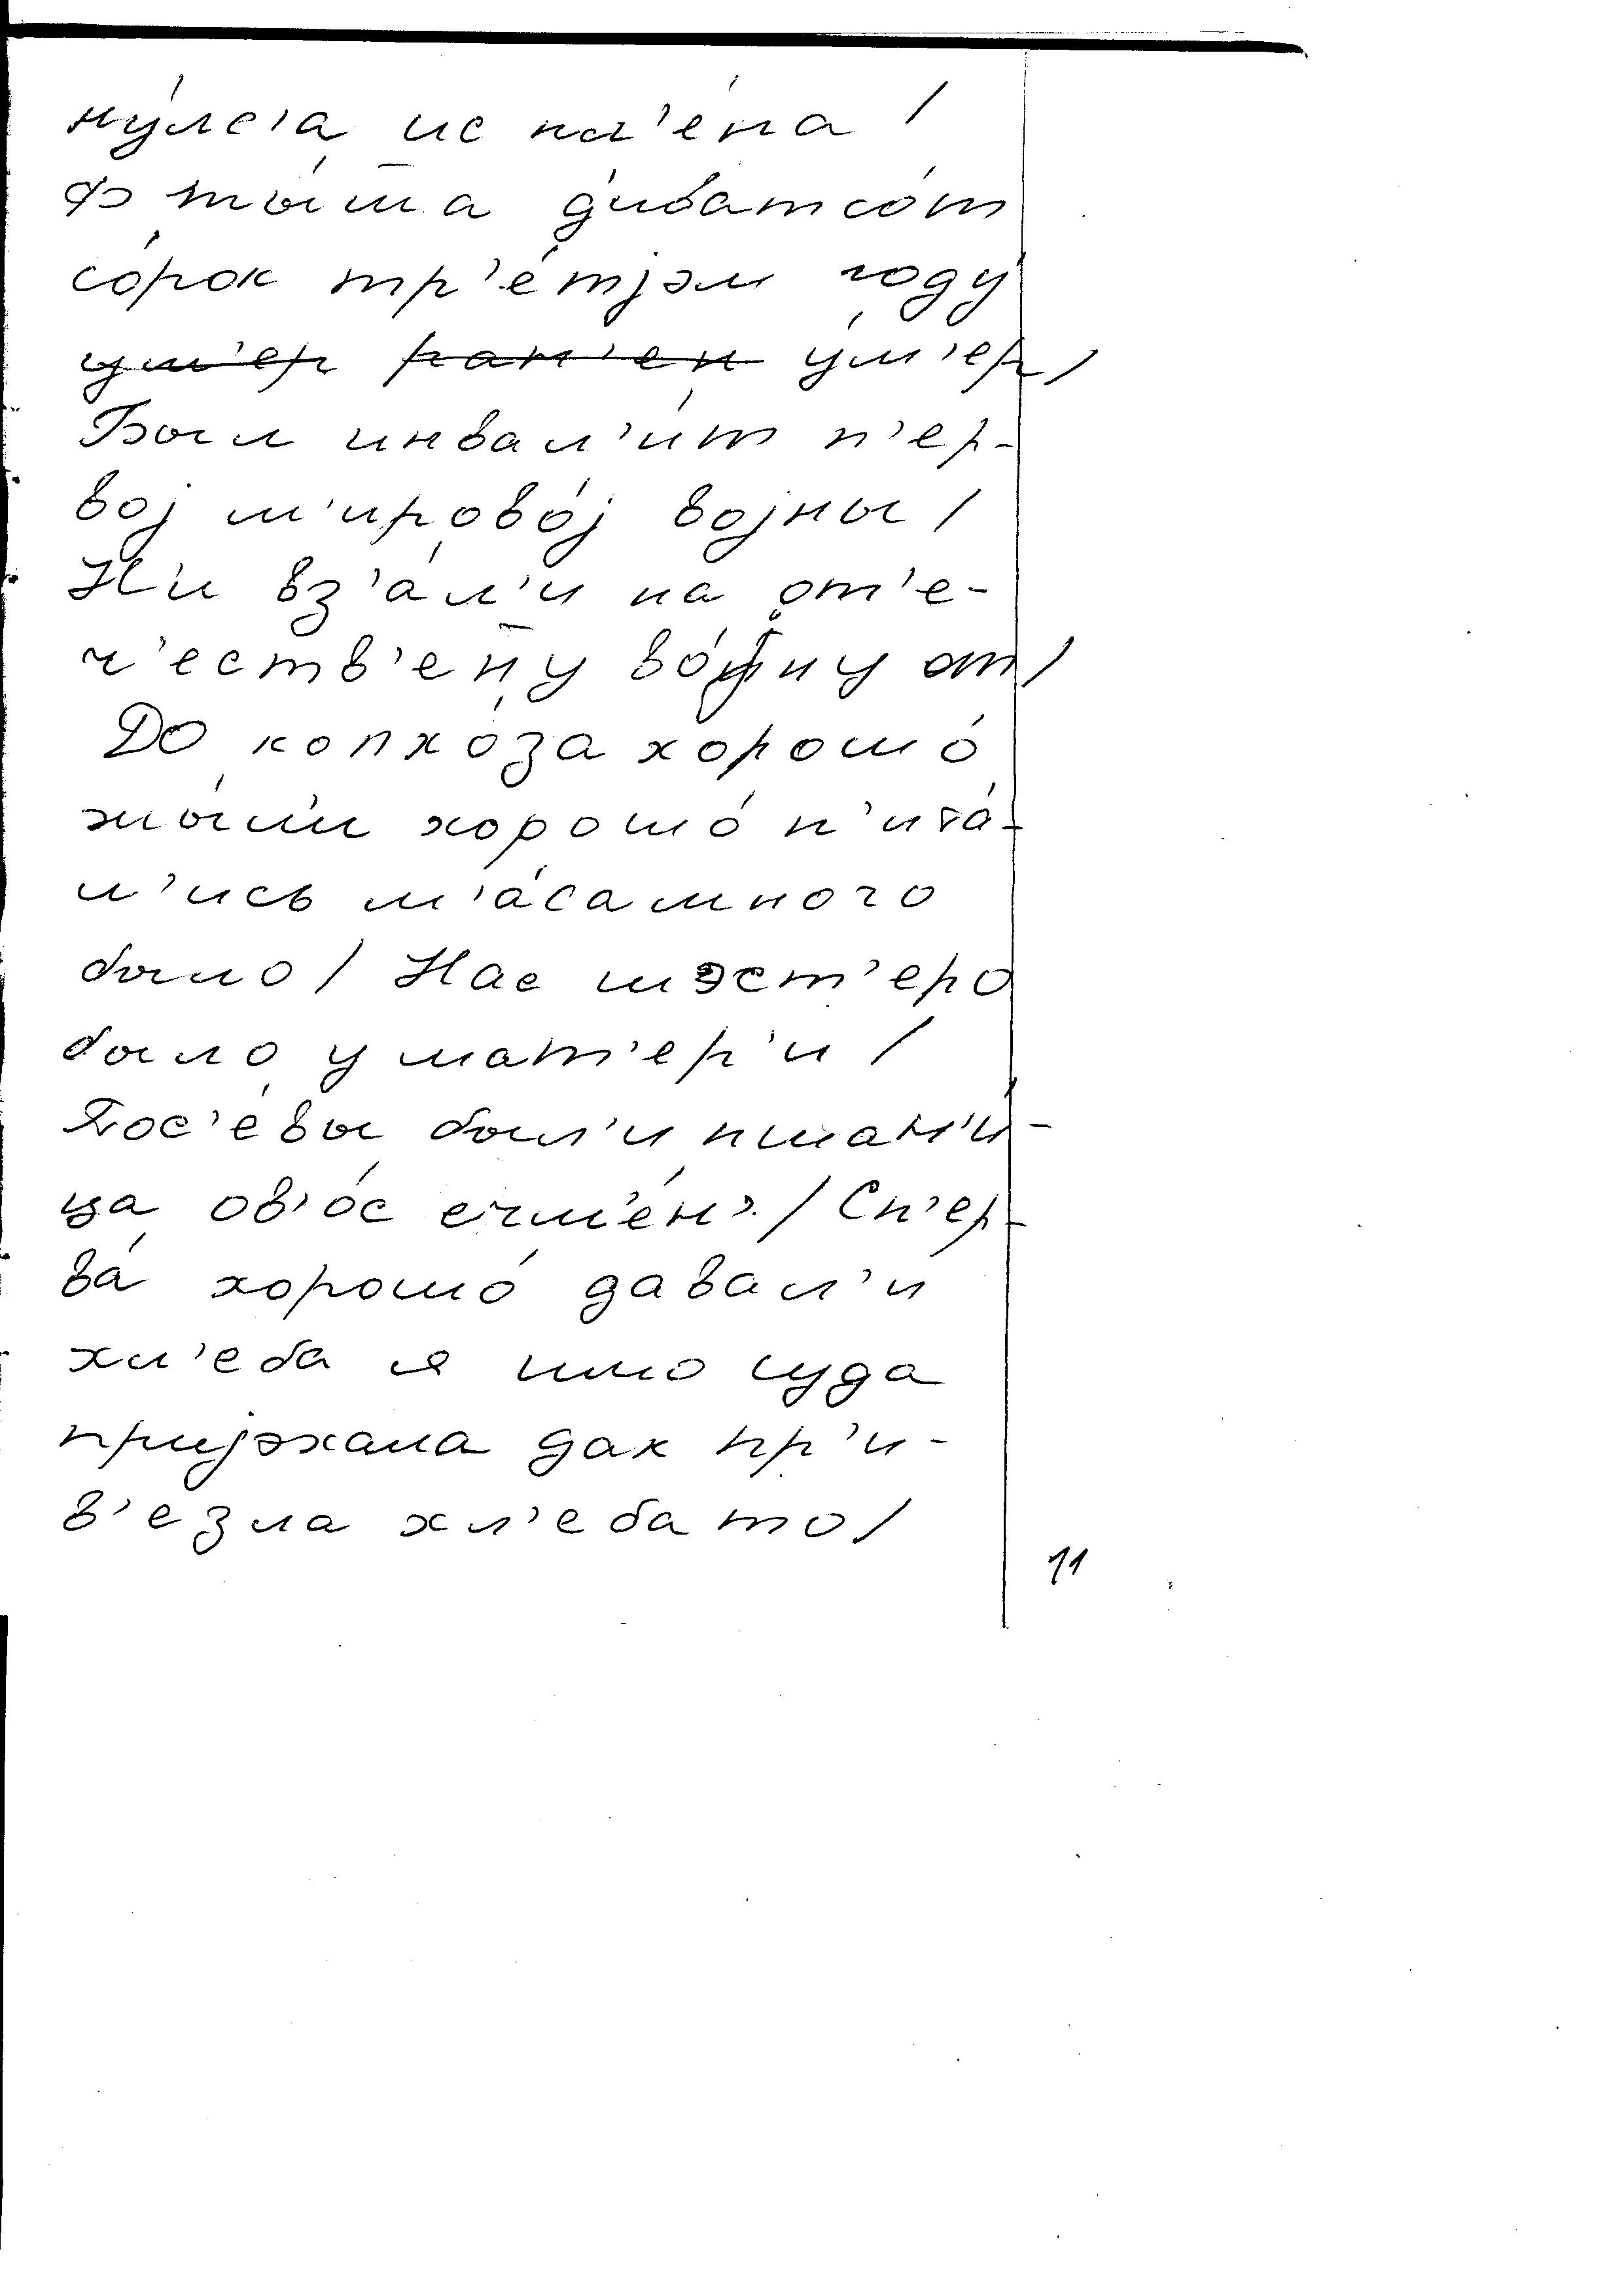 ну́лс'а ис пл'е́на /
Ф ты́ш̄а д'иватсо́т
со́рок тр'е́тjэм году́
ум'ер ран'ен у́м'ер /
Был инвал'и́т п'ер-
воj м'ирово́j воjны /
Н'и вз'а́л'и на от'е-
ч'еств'ен̄у во́jну от /
До колхо́за хорошо́
жы́л'и хорошо́ п'ита́-
л'ись м'а́са много
было / Нас шэст'еро
было у мат'ер'и /
Пос'е́вы был'и пшан'и-
ца ов'о́с ечм'е́н' / Сп'ер-
ва́ хорошо́ давал'и
хл'еба я ишо суда
приjэхала дак пр'и-
в'езла хл'еба то /
11